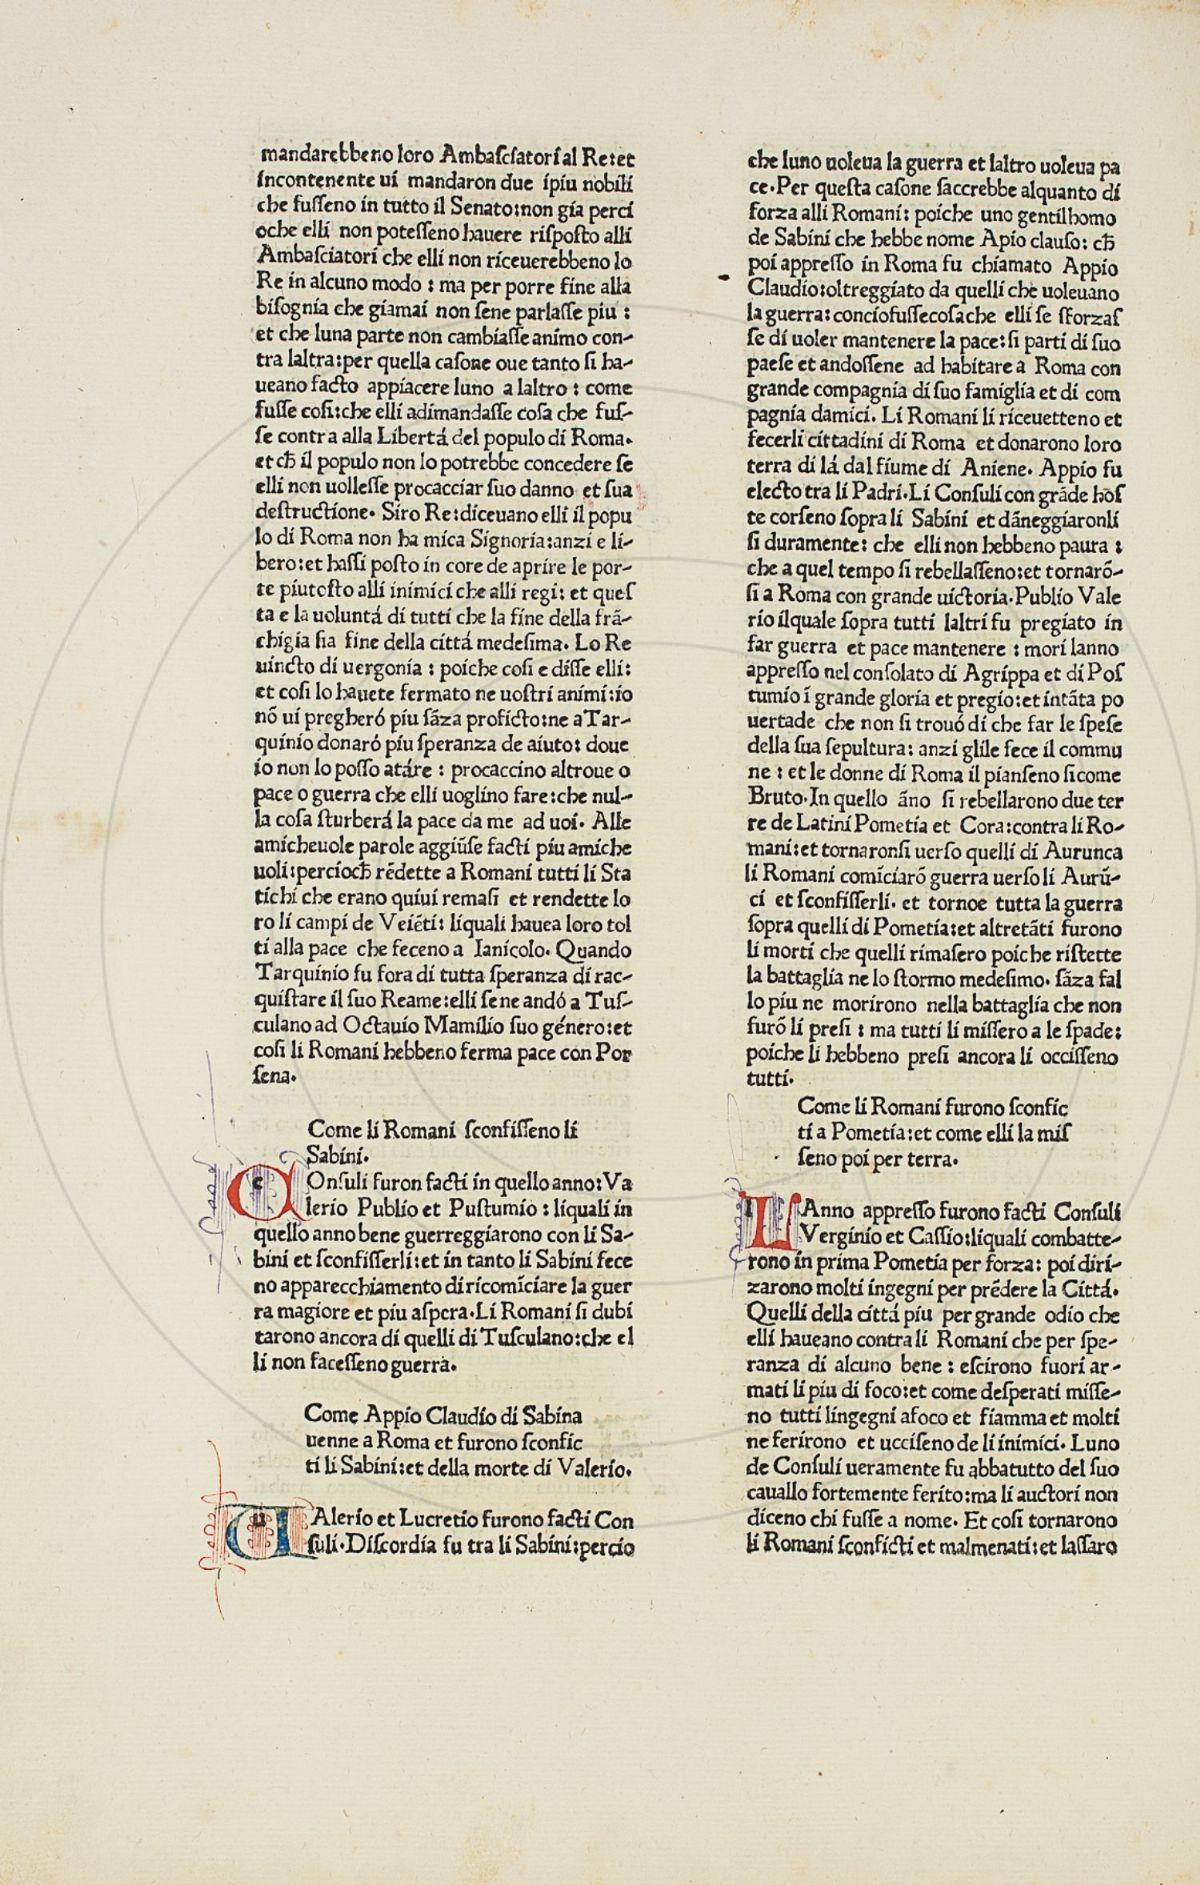 mandarebbeno loro Ambaſciatori al Re:et
incontenente ui mandaron due ipiu nobili
che fuſſeno in tutto il Senato:non gia perci
oche elli non poteſſeno hauere riſpoſto alli
Ambaſciatori che elli non riceuerebbeno lo
Re in alcuno modo : ma per porre fine alla
biſognia che giamai non ſene parlaſſe piu :
et che luna parte non cambiaſſe animo con-
tra laltra:per quella caſone oue tanto ſi ha-
ueano facto appiacere luno a laltro : come
fuſſe coſi:che elli adimandaſſe coſa che fuſ-
ſe contra alla Libertá del populo di Roma.
et cħ il populo non lo potrebbe concedere ſe
elli non uolleſſe procacciar ſuo danno et ſua
deſtructione. Siro Re:diceuano elli il popu
lo di Roma non ha mica Signoria:anzi e li-
bero:et haſſi poſto in core de aprire le por-
te piutoſto alli inimici che alli regi: et queſ
ta e la uoluntá di tutti che la fine della frã-
chigia ſia fine della cittá medeſima. Lo Re
uincto di uergonia : poiche coſi e diſſe elli:
et coſi lo hauete fermato ne uoſtri animi:io
nõ ui pregheró piu ſãza proficto:ne a Tar-
quinio donaró piu ſperanza de aiuto: doue
io non lo poſſo atáre : procaccino altroue o
pace o guerra che elli uoglino fare:che nul-
la coſa ſturberá la pace da me ad uoi. Alle
amicheuole parole aggiũſe facti piu amiche
uoli:perciocħ rẽdette a Romani tutti li Sta
tichi che erano quiui remaſi et rendette lo
ro li campi de Veiẽti: liquali hauea loro tol
ti alla pace che feceno a Ianicolo. Quando
Tarquinio fu fora di tutta ſperanza di rac-
quiſtare il ſuo Reame:elli ſene andó a Tuſ-
culano ad Octauio Mamilio ſuo género:et
coſi li Romani hebbeno ferma pace con Por
ſena.
Come li Romani ſconfiſſeno li
Sabini.
COnſuli furon facti in quello anno: Va
lerio Publio et Puſtumio : liquali in
quello anno bene guerreggiarono con li Sa-
bini et ſconfiſſerli:et in tanto li Sabini fece
no apparecchiamento di ricomĩciare la guer
ra magiore et piu aſpera.Li Romani ſi dubi
tarono ancora di quelli di Tuſculano:che el
li non faceſſeno guerra.
Come Appio Claudio di Sabina
uenne a Roma et furono ſconfic
ti li Sabini:et della morte di Valerio.
UAlerio et Lucretio furono facti Con
ſuli.Diſcordia fu tra li Sabini:percio
che luno uoleua la guerra et laltro uoleua pa
ce.Per queſta caſone ſaccrebbe alquanto di
forza alli Romani: poiche uno gentilhomo
de Sabini che hebbe nome Apio clauſo: cħ
poi appreſſo in Roma fu chiamato Appio
Claudio:oltreggiato da quelli che uoleuano
la guerra: conciofuſſecoſache elli ſe ſforzaſ
ſe di uoler mantenere la pace:ſi parti di ſuo
paeſe et andoſſene ad habitare a Roma con
grande compagnia di ſuo famiglia et di com
pagnia damici. Li Romani li riceuetteno et
fecerli cittadini di Roma et donarono loro
terra di lá dal fiume di Aniene. Appio fu
electo tra li Padri.Li Conſuli con grãde hoſ
te corſeno ſopra li Sabini et dãneggiaronli
ſi duramente: che elli non hebbeno paura :
che a quel tempo ſi rebellaſſeno:et tornarõ-
ſi a Roma con grande uictoria.Publio Vale
rio ilquale ſopra tutti laltri fu pregiato in
far guerra et pace mantenere : mori lanno
appreſſo nel conſolato di Agrippa et di Poſ
tumio ĩ grande gloria et pregio:et intãta po
uertade che non ſi trouó di che far le ſpeſe
della ſua ſepultura: anzi glile fece il commu
ne : et le donne di Roma il pianſeno ſicome
Bruto.In quello ãno ſi rebellarono due ter
re de Latini Pometia et Cora:contra li Ro-
mani:et tornaronſi uerſo quelli di Aurunca
li Romani comĩciarõ guerra uerſo li Aurũ-
ci et ſconfiſſerli. et tornoe tutta la guerra
ſopra quelli di Pometia:et altretãti furono
li morti che quelli rimaſero poiche riſtette
la battaglia ne lo ſtormo medeſimo. ſãza fal
lo piu ne morirono nella battaglia che non
furõ li preſi : ma tutti li miſſero a le ſpade:
poiche li hebbeno preſi ancora li occiſſeno
tutti.
Come li Romani furono ſconfic
ti a Pometia:et come elli la miſ
ſeno poi per terra.
LAnno appreſſo furono facti Conſuli
Verginio et Caſſio:liquali combatte-
rono in prima Pometia per forza: poi diri-
zarono molti ingegni per prẽdere la Cittá.
Quelli della cittá piu per grande odio che
elli haueano contra li Romani che per ſpe-
ranza di alcuno bene : eſcirono fuori ar-
mati li piu di foco:et come deſperati miſſe-
no tutti lingegni afoco et fiamma et molti
ne ferirono et ucciſeno de li inimici. Luno
de Conſuli ueramente fu abbatutto del ſuo
cauallo fortemente ferito:ma li auctori non
diceno chi fuſſe a nome. Et coſi tornarono
li Romani ſconficti et malmenati:et laſſaro